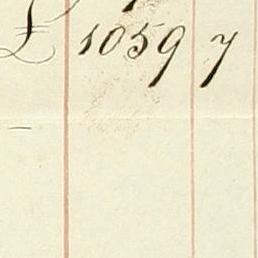 £ 1059 7
—